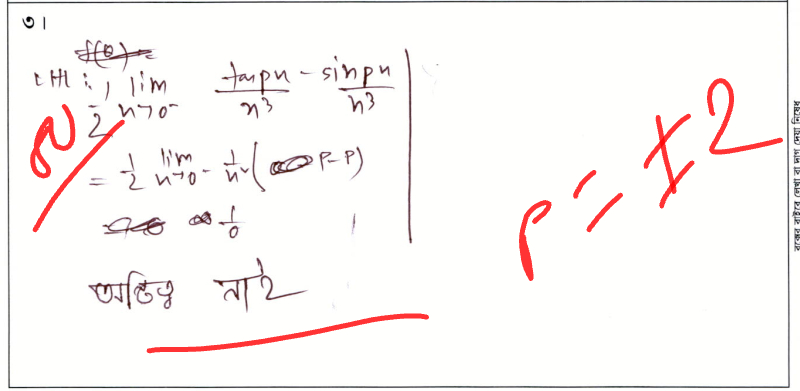 ৩।
f(0) =
LHL : 1/2 lim n→0⁻ tanpn/n³ - sinpn/n³
= 1/2 lim n→0⁻ 1/n² ( p-p)
1/0
অস্তিত্ব নাই
p = ±2
বক্সের বাইরে লেখা বা দাগ দেয়া নিষেধ